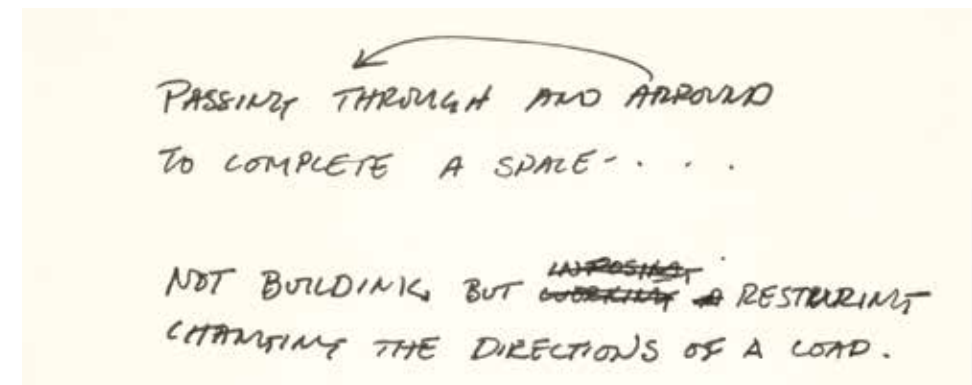 PASSING THROUGH AND ARROUND
TO COMPLETE A SPACE- . . .
INPOSING
NOT BUILDING, BUT WORKING RESTURING
CHANGING THE DIRECTIONS OF A LOAD.